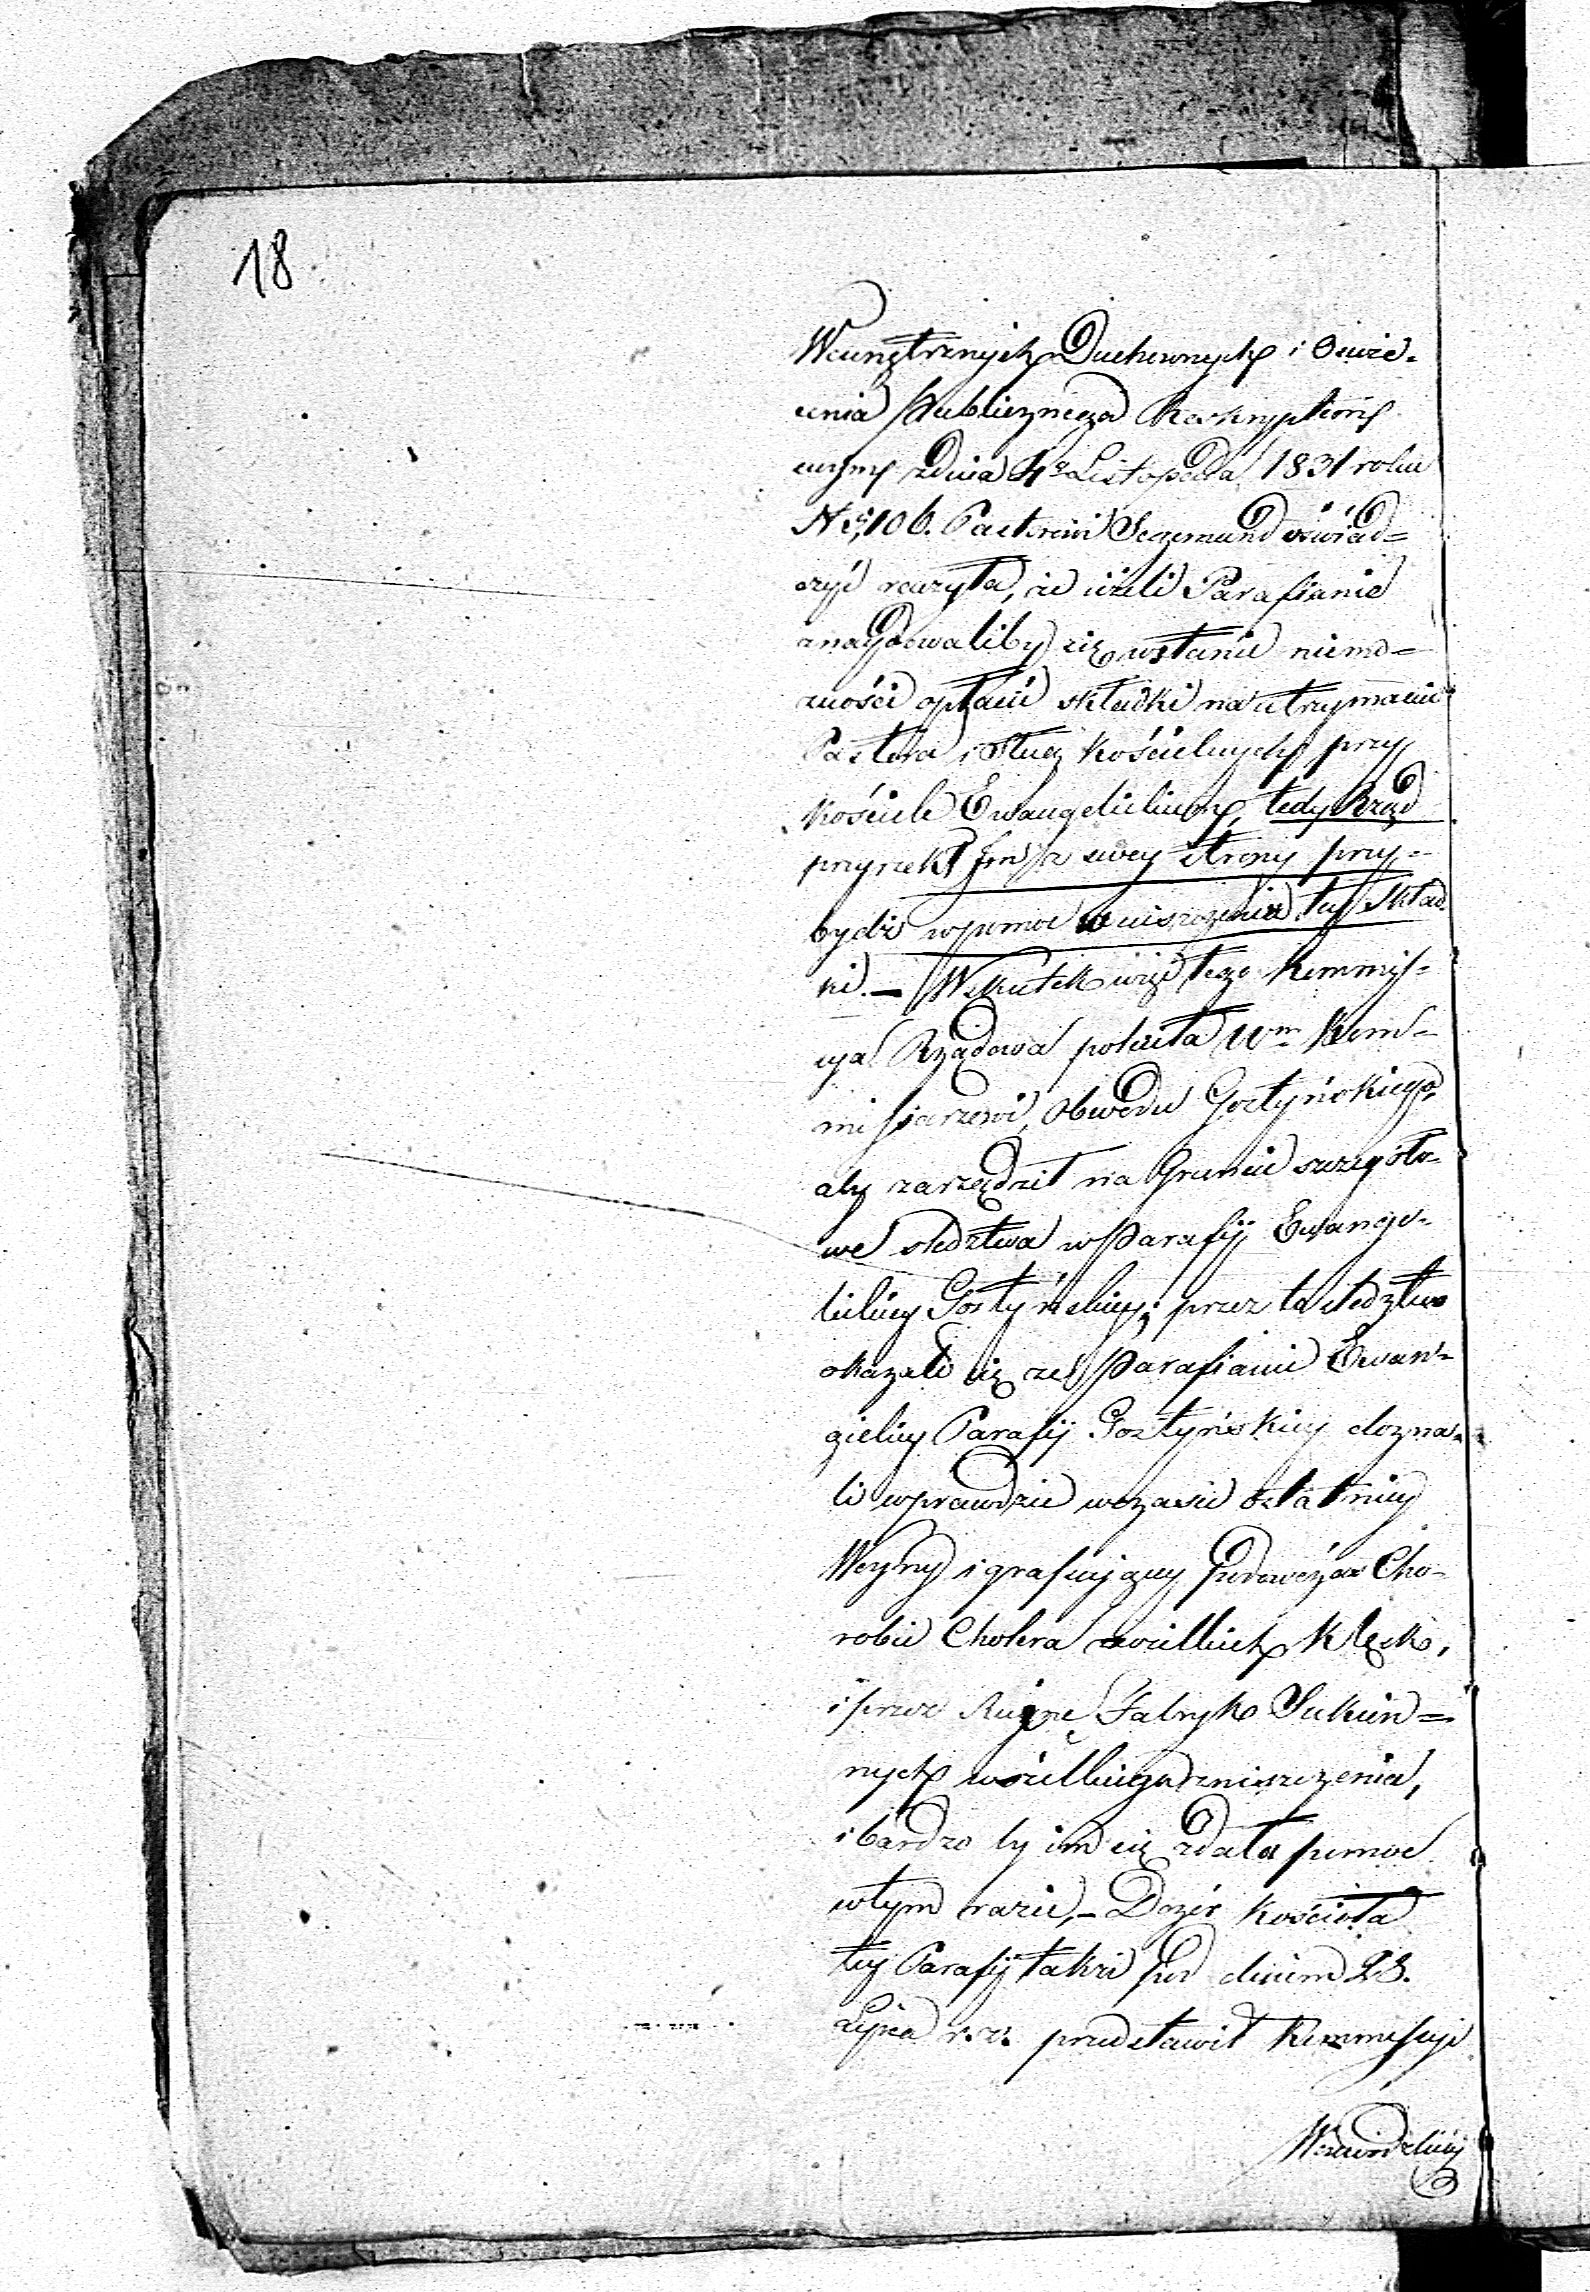 18
Wewnętrznych Duchownych i Oświe-
cenia Publicznego Reskryptem
swym zdnia 4º Listopada 1831 roku
Nº 106. Pastorowi Segemund oświad=
czyć raczyła, że ieżeli Parafianie
znaydowaliby się wstanie niemo=
żności opłacić składki na utrzymanie
Pastora i Sług Kościelnych przy
Kościele Ewangelickim, tedy Rząd
przyrzekł im z swey strony przy-
bydź wpomoc w uiszczenia tey Skład
ki. — Wskutek więc tego Kommis-
sya Rządowa poleciła Wm Kom-
missarzowi Obwodu Gostyńskiego,
aby zarządził na Gruncie szczegóło-
we sledztwa w Parafij Ewange-
lickiey Gostyńskiey; przez to sledztwo
okazało się że Parafianie Ewan-
gieliey Parafij Gostyńskiey dozna-
li wprawdzie wczasie ostatniey
Woyny i grassuiącey podówczas Cho-
robie Cholera wielkich klęsk,
i przez Ruinę Fabryk Sukien=
nych wielkiego zniszczenia,
i bardzo by im się zdała pomoc
wtym razie, – Dozór Kościoła
tey Parafij także pod dniem 28.
Lipca r. z. przedstawił Kommissyi
Woiewodzkiey